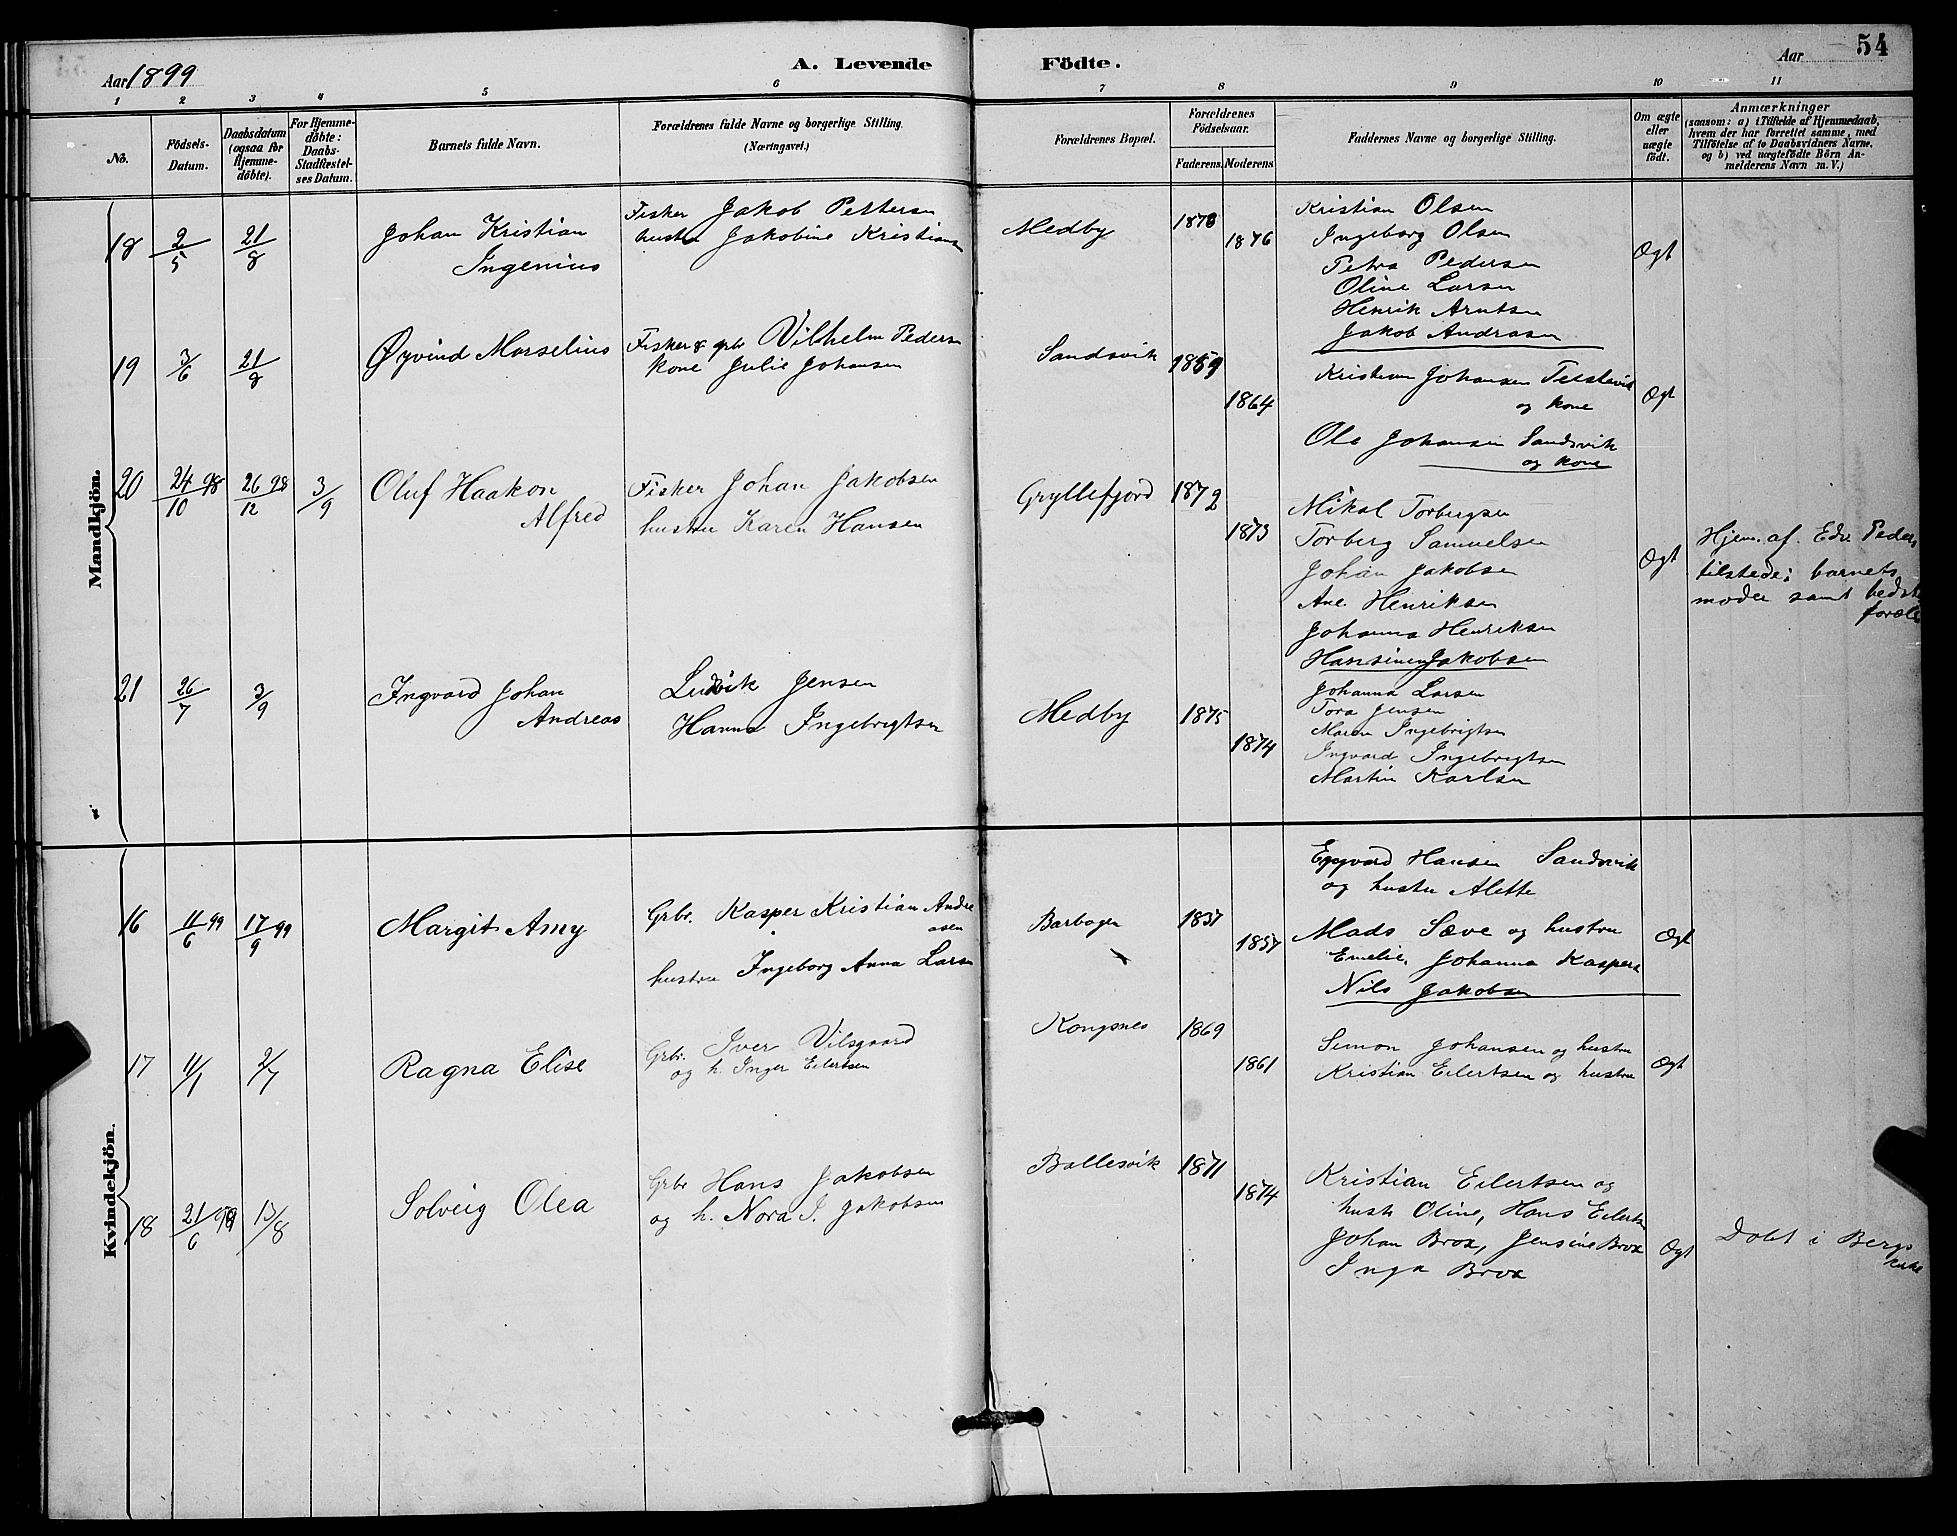 Aar 1899
A. Levende Födte.
Aar
54
1 2 3 4 5 6 7 8 9 10 11
No.
Födsels-Datum.
Daabsdatum (ogsaa for Hjemme-döbte).
For Hjemme-döbte: Daabs-Stadfæstel-ses Datum.
Barnets fulde Navn.
Forældrenes fulde Navne og borgerlige Stilling. (Næringsvei.)
Forældrenes Bopæl.
Forældrenes Födselsaar.
Faderens. Moderens.
Faddernes Navne og borgerlige Stilling.
Om ægte eller uægte födt.
Anmærkninger
(saasom: a) i Tilfælde af Hjemmedaab, hvem der har forrettet samme, med Tilföielse af to Daabsvidners Navne, og b) ved uægtefödte Börn An-melderens Navn m. V.)
Mandkjön.
18 2/5 21/8
Johan Kristian
Ingenius
Fisker Jakob Pettersen
hustru Jakobine Kristians
Medby
1878
1876
Kristian Olsen
Ingeborg Olsen
Petra Pedersen
Oline Larsen
Henrik Arntsen
Jakob Andrasen
Ægt
19 3/6 21/8
Øyvind Marselius
Fisker & grb Vilhelm Peders
kone Julie Johansen
Sandsvik
1859
1864
Kristian Johansen
og kone
Ole Johansen Sandsvik
og kone
Ægt
20 24/10 98 26/12 98 3/9
Oluf Haakon
Alfred
Fisker Johan Jakobsen
hustru Karen Hansen
Gryllefjord
1872
1873
Mikal Torbergsen
Torberg Samuelsen
Johan Jakobsen
Ane Henriksen
Johanna Henriksen
Hansine Jakobsen
Ægt
Hjem. af. Edv. Peders
tilstede: barnets
moder samt bedst
foræl
21 26/7 3/9
Ingvard Johan
Andreas
Ludvik Jensen
Hanna Ingebrigtsen
Medby
1875
1874
Johanna Larsen
Tora Jensen
Maren Ingebrigtsen
Ingvard Ingebrigtsen
Martin Karlsen
Kvindekjön.
16 11/6 99 17/9 99
Margit Amy
Grbr. Kasper Kristian Andre
asen
hustru Ingeborg Anna Larsen
1857
1857
Hansen Sandsvik
og hustru Alette
Mads Sæve og hustru
Emelie, Johanna Kaspers
Nils Jakobsen
Ægt
17 11/1 2/7
Ragna Elise
Grbr. Iver Vilsgaard
og h. Inger Eilertsen
Kongsnes
1869
1861
Simon Johansen og hustru
Kristian Eilertsen og hustru
Ægt
18 21/6 99 13/8
Solveig Olea
Grbr Hans Jakobsen
og h. Nora J. Jakobsen
Ballesvik
1871
1874
Kristian Eilertsen og
hustr Oline, Hans Eilerts
Johan Brox, Jensine Brox
Inga Brox
Ægt
Døbt i Bergs
kirke